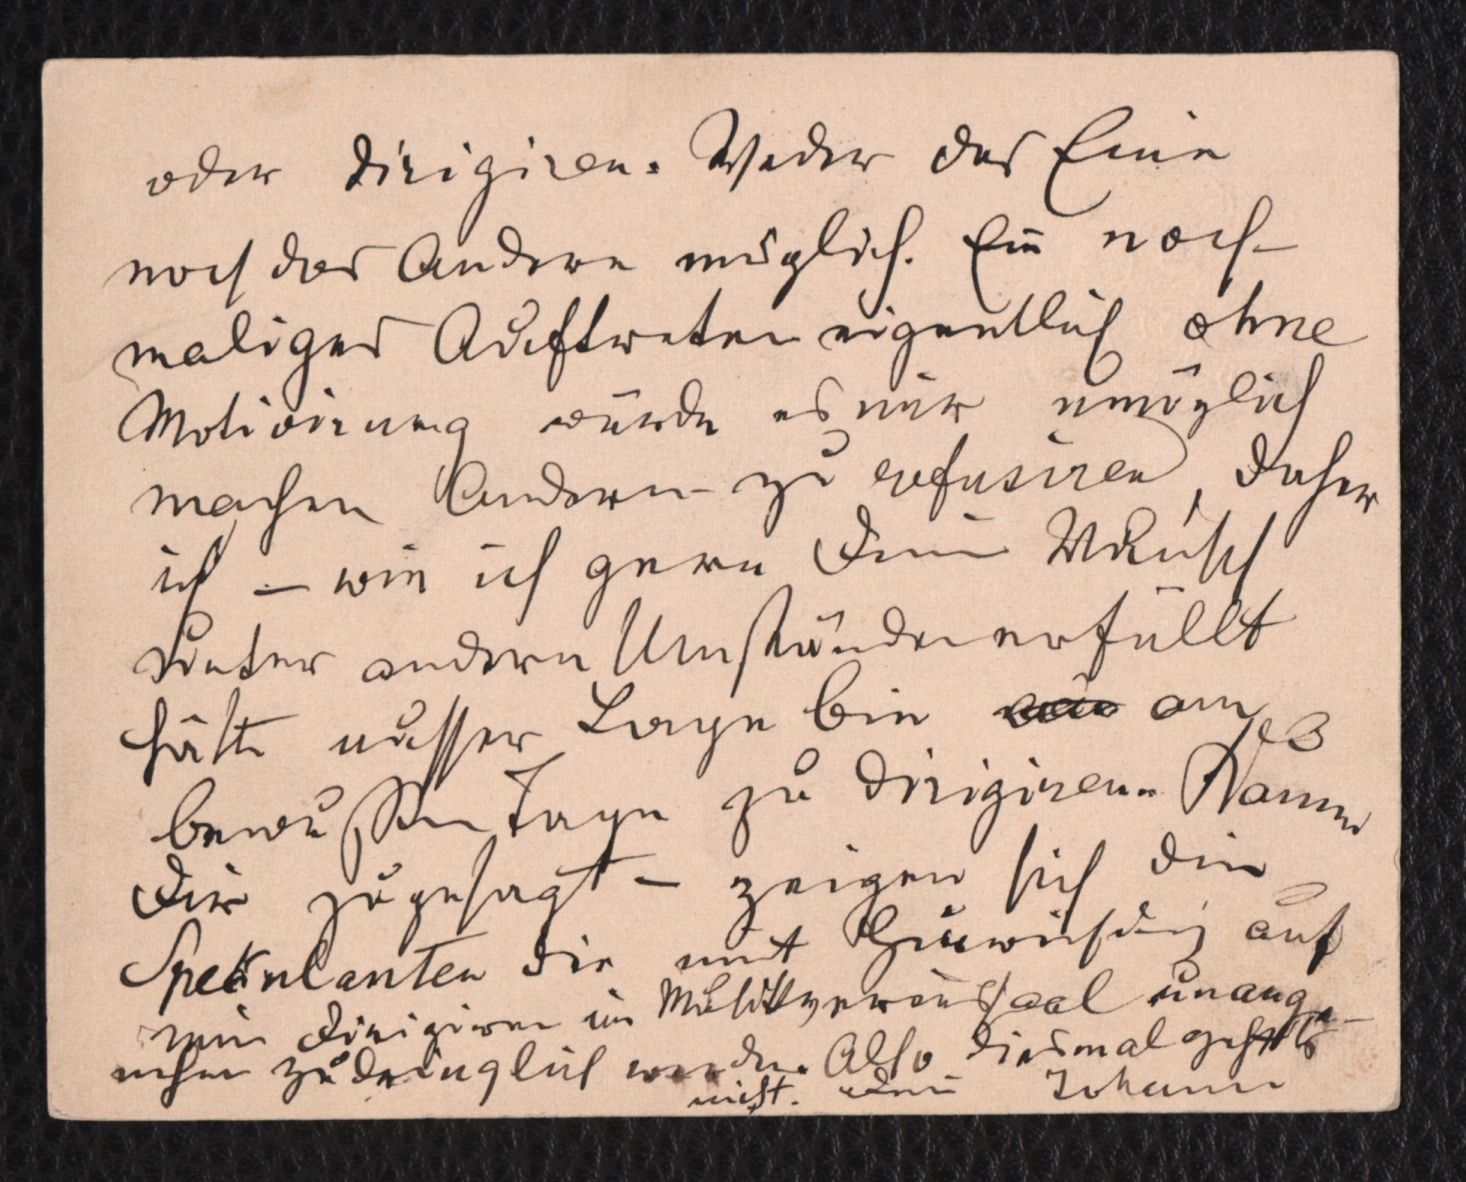 oder dirigiren. Weder das Eine
noch das Andere möglich. Ein noch-
maliges Auftreten eigentlich ohne
Motivirung würde es mir unmöglich
machen Andern zu refusiren, daher
ich – wie ich gern Dein Wunsch
unter andern Umständen erfüllt
hätte ausser Lage bin am
bewußten Tage zu dirigiren. Kaum
Dir zugesagt – zeigen sich die
Spekulanten die mit Hinweisung auf
mein Dirigiren im Musikvereinssaal unange-
nehm zudringlich werden. Also diesmal gehts
nicht. Dein Johann